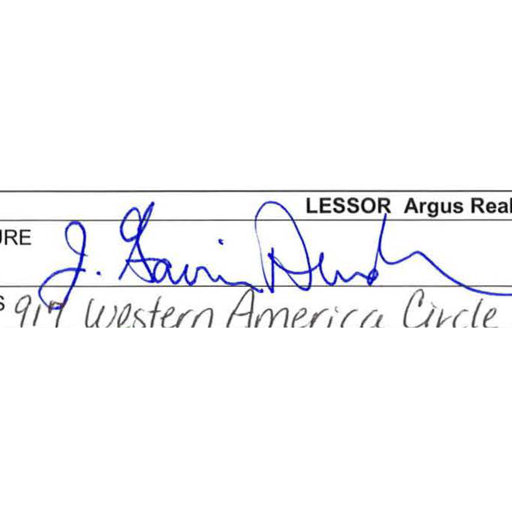 LESSOR Argus Real
URE J. Gavin
S 917 Western America Circle